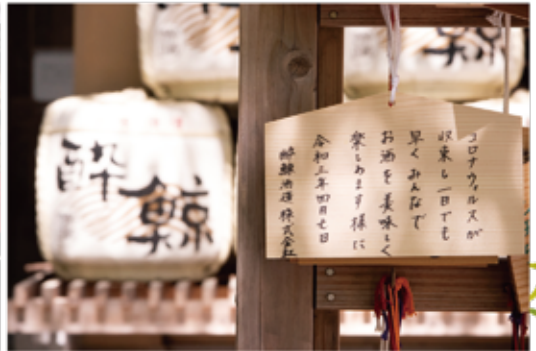 コロナウィルスが
収束し一日でも
早くみんなで
お酒を美味しく
楽しめます様に
令和三年四月七日
酔鯨酒造株式会社
酔鯨